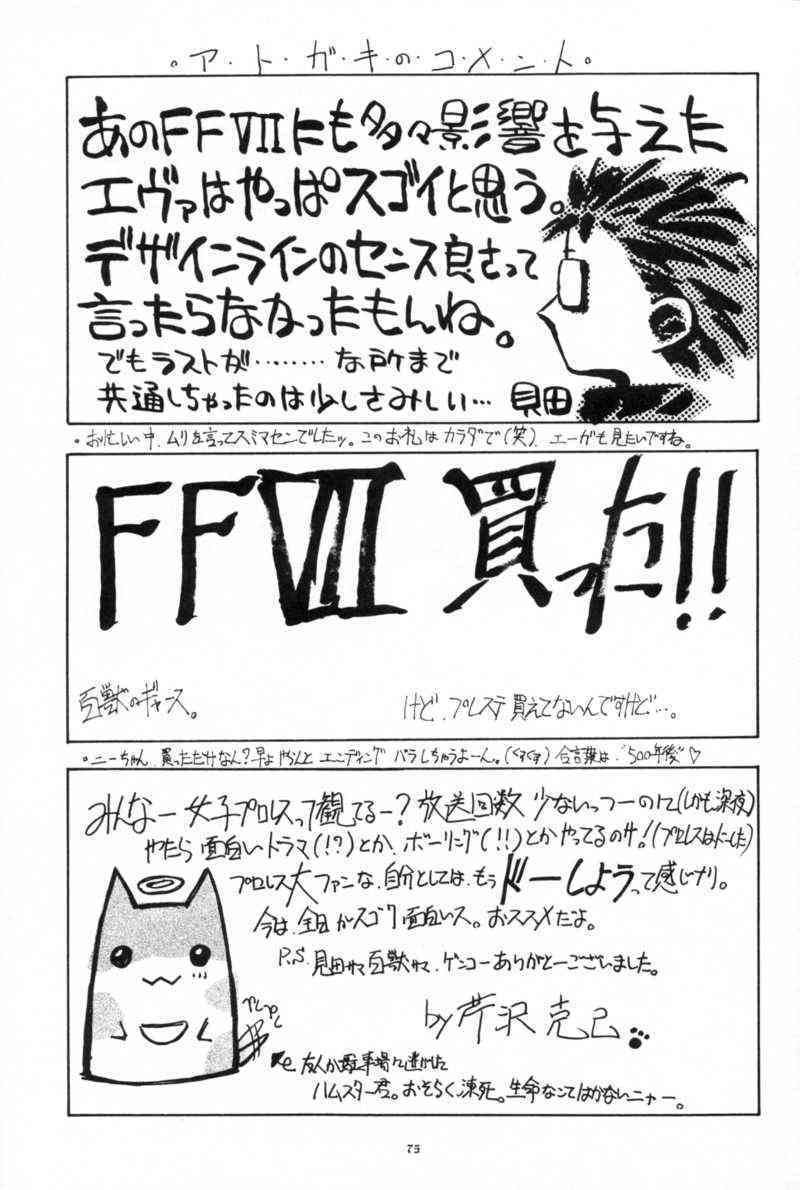 。ア・ト・ガ・キ・の・コ・メ・ン・ト。
あのFFⅦにも多々影響を与えた
エヴァはやっぱスゴイと思う。
デザインラインのセンス良さって
言ったらなかったもんね。
でもラストが………な所まで
共通しちゃったのは少しさみしい… 見田
・お忙しい中、ムリを言ってスミマセンでしたッ。このお礼はカラダで(笑)、エーガも見たいですね。
FFⅦ 買った!!
百獣のギャース。
けど、プレステ買えてないんですけど…。
・ニーちゃん、買っただけなん?早よやらんと エンディング バラしちゃうよーん。(くすくす)合言葉は、"500年後"♡
みんなー 女子プロレスって観てるー?放送回数 少ないっつーのに(しかも深夜)
やたら 面白いドラマ(!?)とか、ボーリング(!!)とかやってるのサ!(プロレスはどした)
プロレス大ファンな、自分としては、もうドーしようって感じナリ。
今は、全日がスゴク面白いス。おススメだよ。
P.S. 見田サマ 百獣サマ、ゲンコーありがとーございました。
by芹沢 克己
友人が駐車場で逃がした
ハムスター君。おそらく、凍死。生命なんてはかないニャー。
75